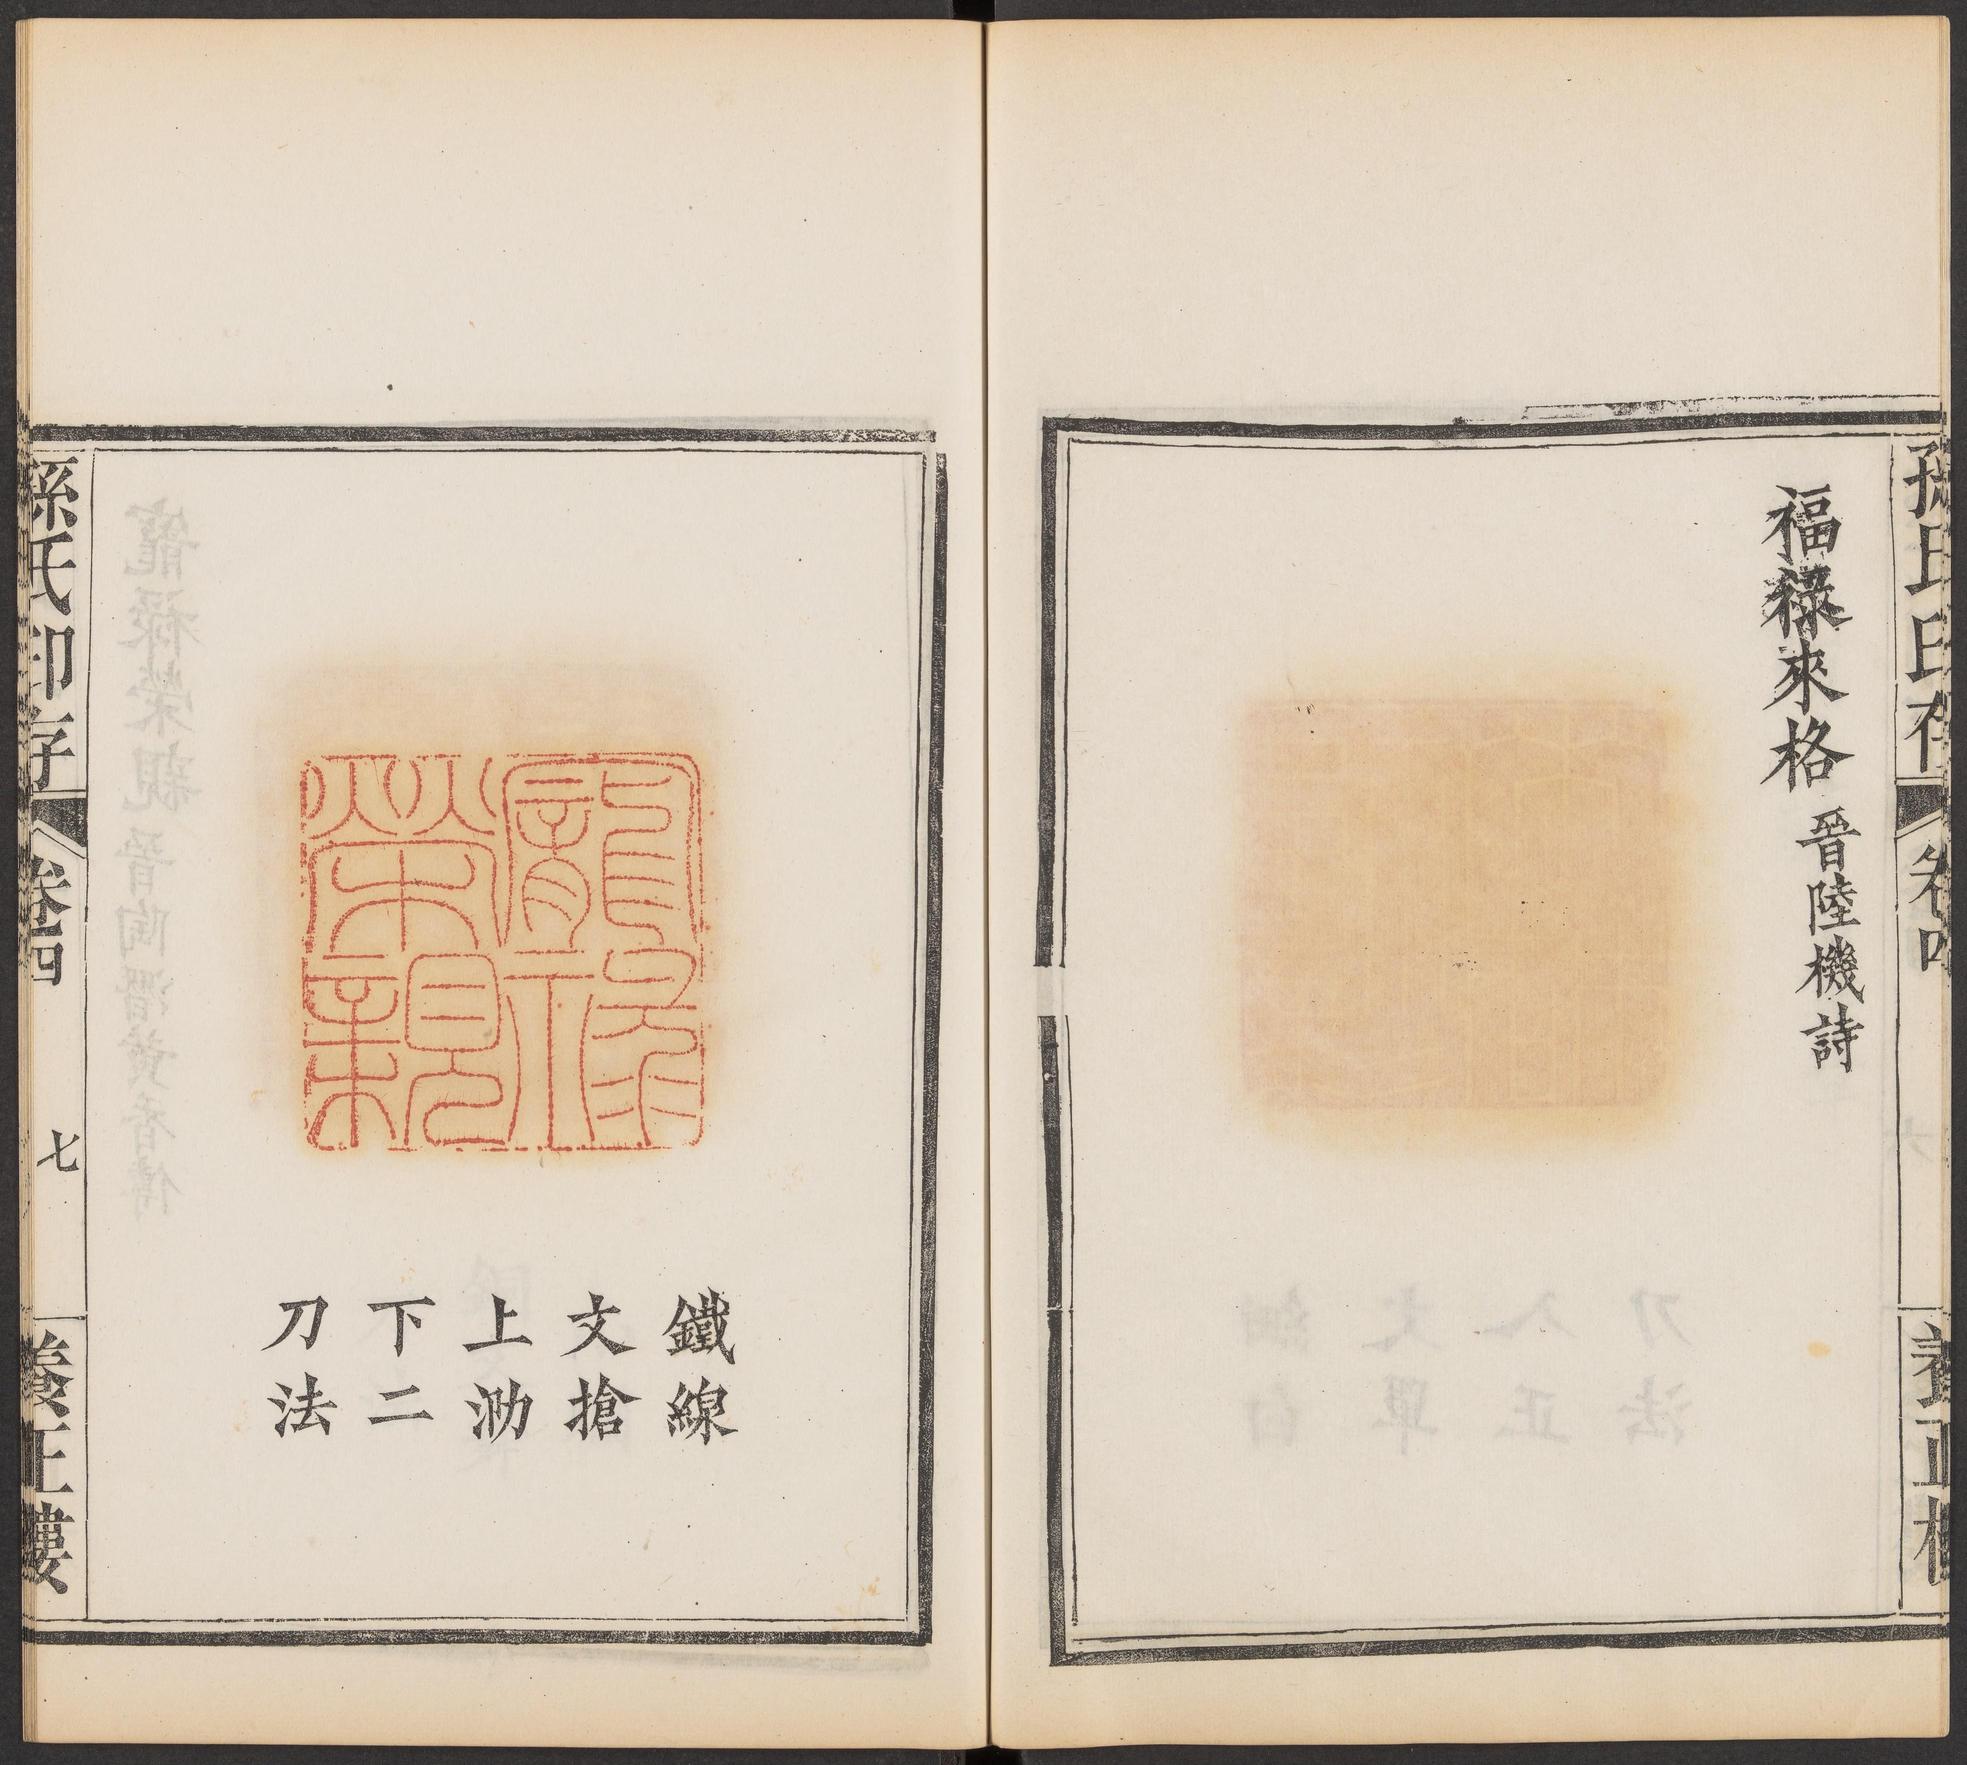 孫氏印存
卷四
養正樓
福祿來格 晉陸機詩
寵祿榮親
鐵線
文搶
上泐
下二
刀法
孫氏印存
卷四
七
養正樓